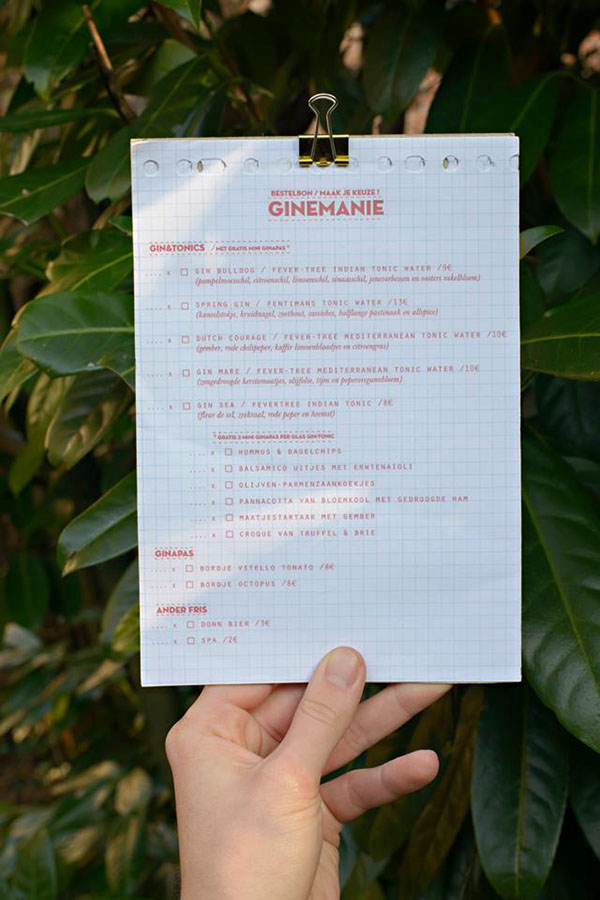 BESTELBON / MAAK JE KEUZE !
GINEMANIE
GIN&TONICS / MET GRATIS MINI GINAPAS *
.... x GIN BULLDOG / FEVER-TREE INDIAN TONIC WATER /9€
(pompelmoesschil, citroenschil, limoenschil, sinaasschil, jeneverbessen en oosters rakelbloem)
.... x SPRING GIN / FENTIMANS TONIC WATER /13€
(kaneelstokje, kruidnagel, zoethout, halflange pastinaak en allspice)
.... x DUTCH COURAGE / FEVER-TREE MEDITERRANEAN TONIC WATER /10€
(gember, rode chilipeper, kaffir limoenblaadjes en citroengras)
.... x GIN MARE / FEVER-TREE MEDITERRANEAN TONIC WATER /10€
(zongedroogde kerstomaatjes, olijfolie, tijm en)
.... x GIN SEA / FEVERTREE INDIAN TONIC /8€
(fleur de sel, zeekraal, rode peper en heemst)
* GRATIS 2 MINI GINAPAS PER GLAS GIN-TONIC
.... x HUMMUS & BAGELCHIPS
.... x BALSAMICO UITJES MET ERWTENAIOLI
.... x OLIJVEN-PARMENZAANKOEKJES
.... x PANNACOTTA VAN BLOEMKOOL MET GEDROOGDE HAM
.... x MAATJESTARTAAR MET GEMBER
.... x CROQUE VAN TRUFFEL & BRIE
GINAPAS
.... x BORDJE VITELLO TOMATO /8€
.... x BORDJE OCTOPUS /8€
ANDER FRIS
.... x DONN BIER /3€
.... x SPA /2€